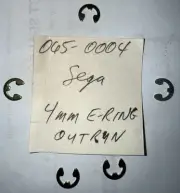 065-0004
Sega
4mm E-RING
OUTRUN